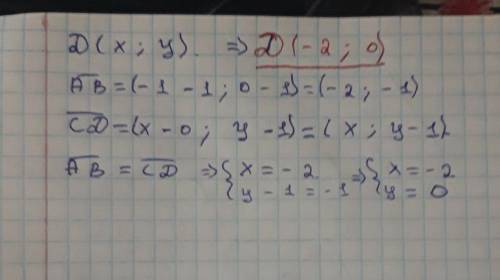 D(x; y). => D(-2; 0)
AB = (-1 -1; 0 -1) = (-2; -1)
CD = (x - 0; y - 1) = (x; y - 1)
AB = CD => { x = -2 y - 1 = -1 => { x = -2 y = 0